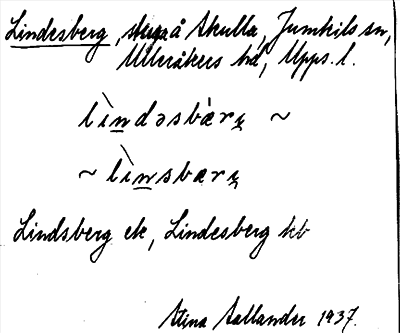 Lindesberg, stuga å Skulla, Jumkils sn,
Ulleråkers hd, Upps. l.
lìndəsbàrɡ ~
~ lìnsbarɡ
Lindsberg ek, Lindesberg kb
Stina Sallander 1937.